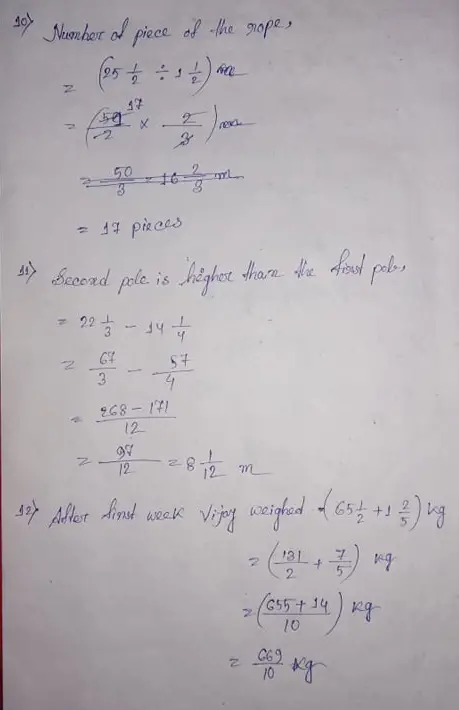 10) Number of piece of the rope,
= (25 1/2 ÷ 1 1/2) m
= (51/2 17 × 2/3) m
= 50/3 = 16 2/3 m
= 17 pieces
11) Second pole is higher than the first pole,
= 22 1/3 - 14 1/4
= 67/3 - 57/4
= 268 - 171/12
= 97/12 = 8 1/12 m
12) After first week Vijay weighed = (65 1/2 + 1 2/5) kg
= (131/2 + 7/5) kg
= (655 + 14/10) kg
= 669/10 kg